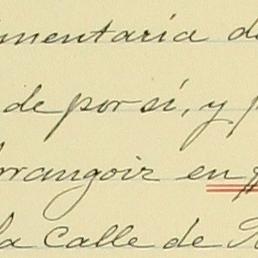 mentaria d
de por sí, y p
rrangoiz en
la Calle de